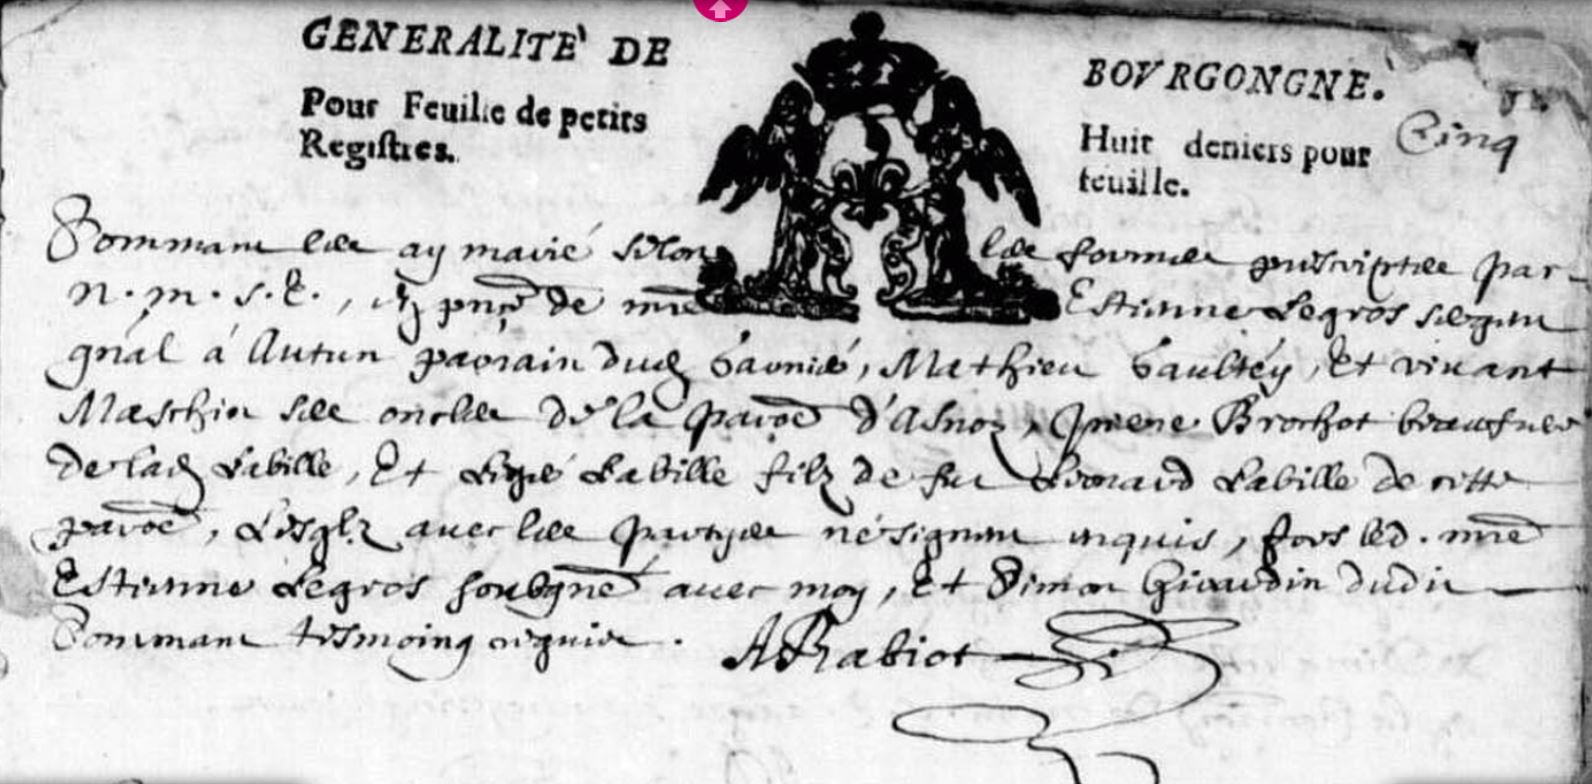 GENERALITE' DE BOVRGONGNE.
Pour Feuille de petits Huit deniers pour
Registres. feuille.
Cinq
Sommant les ay marié selon la forme prescripte par
n.m.s.E., en pnce de mre Estienne Legros sergent
gnal á Autun parrain dud Mathieu Gaultéy, Et vivant
de la paroe d'Asnoz, Brochot beaufrere
de lad Labille, Et Labille filz de fu Léonard Labille de cette
paroe, avec les partyes né signent enquis, fors led. mre
Estienne Legros soubgné avec moy, Et Simon Girardin dudit
Sommant tesmoing requis.
ARabiot